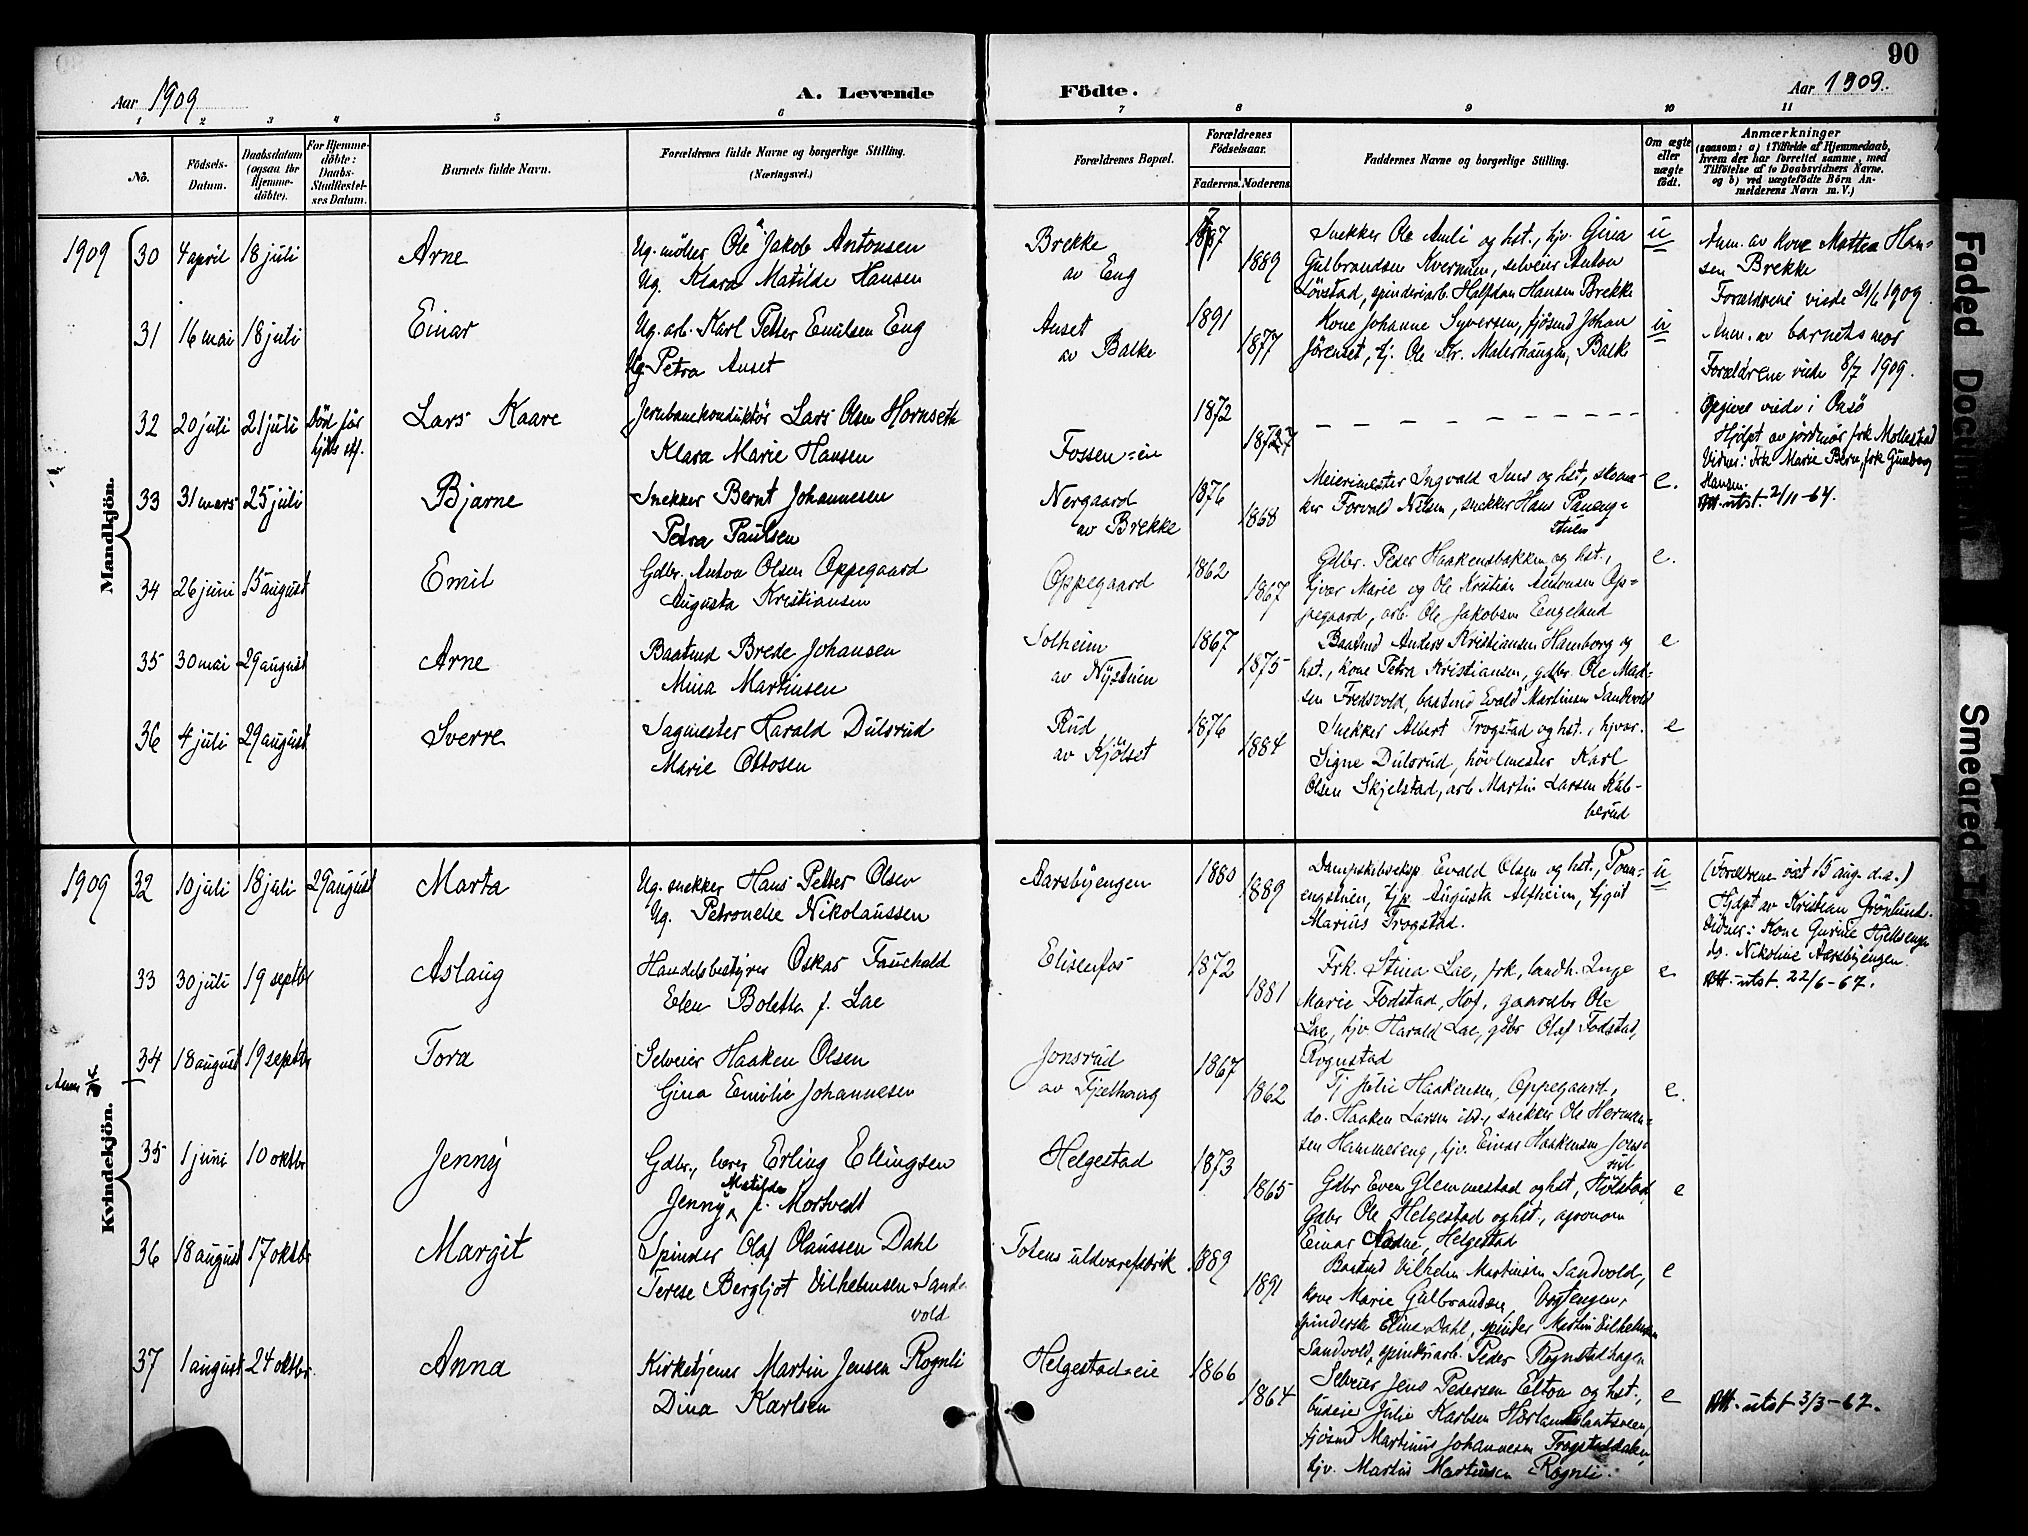 90
Aar 1909
A. Levende
Födte.
Aar 1909.
1 2 3 4 5 6 7 8 9 10 11
No.
Födsels-Datum.
Daabsdatum (ogsaa for Hjemme-döbte).
For Hjemme-döbte: Daabs-Stadfæstel-ses Datum.
Barnets fulde Navn.
Forældrenes fulde Navne og borgerlige Stilling.
(Næringsvei.)
Forældrenes Bopæl.
Forældrenes Födselsaar.
Faderens. Moderens.
Faddernes Navne og borgerlige Stilling.
Om ægte eller uægte födt.
Anmærkninger
(saasom: a) i Tilfælde af Hjemmedaab,
hvem der har forrettet samme, med
Tilföielse af to Daabsvidners Navne.
og b) ved uægtefödte Börn An-
melderens Navn m. V.)
Mandkjön.
1909 30 4 april 18 juli Arne
Ug. møller Ole Jakob Antonsen
Ug. Klara Matilde Hansen
Brekke
av Eng
1887
1889
Snekker Ole Amli og hst., hjv. Gina
Gulbrandsen Kvernuen, selveier Anton
Løvstad, spinderiarb. Halfdan Hansen Brekke
u
Anm. av kone Mathea Han-
sen Brekke
Forældrene viede 21/6 1909.
31 16 mai 18 juli Einar
Ug. arb. Karl Petter Emilsen Eng
Ug. Petra Anset
Anset
av Balke
1891
1877
Kone Johanne Syversen, fjøsmd Johan
Jørenset, tj. Ole Kr. Malerhaugen, Balk
u
Anm. av barnets mor
Forældrene viede 8/7 1909.
32 20 juli 21 juli Död før hjds stf. Lars Kaare
Jernbanekonduktør Lars Olsen Hornseth
Klara Marie Hansen
Fossen-eie
1872
1877
Opgives viede i
Hjdpt av jordmor frk Mollestad
Vidner: Frk Marie Bern, frk Gunborg
Hansen.
33 31 mars 25 juli Bjarne
Snekker Bernt Johannesen
Petra Paulsen
Nergaard
av Brekke
1876
1868
Meierimester Ingvald Lus og hst, skoma-
ker Torvald Nilsen, snekker Hans Paneng-
stuen
e.
Att. utst. 2/11-64.
34 26 juni 15 august Emil
Gdbr. Anton Olsen Oppegaard
Augusta Kristiansen
Oppegaard
1862
1867
Gdbr. Peder Haakensbakken og hst.,
hjvær Marie og Ole Kristian Antonsen Op-
pegaard, arb. Ole Jakobsen Engelund
e.
35 30 mai 29 august Arne
Baatsmd Brede Johansen
Mina Martinsen
Solheim
av Nystuen
1867
1875
Baatsmd Anders Kristiansen Hamborg og
hst., kone Petra Kristiansen, gdbr. Ole Mad-
sen Fredsvold, baatsmd Evald Martinsen Sandvold
e
36 4 juli 29 august Sverre
Sagmester Harald Dulsrud
Marie Ottosen
Rud
av Kjølset
1876
1884
Snekker Albert Trogstad og hst., hjvær.
Signe Dulsrud, høvlmester Karl
Olsen Skjelstad, arb Martin Larsen Kub-
berud
e
Kvindekjön.
1909 32 10 juli 18 juli 29 august Marta
Ug. snekker Hans Petter Olsen
Ug. Petronelle Nikolaussen
Aarsbyengen
1880
1889
Dampskibseksp Evald Olsen og hst., Pran-
engstuen, tjp. Augusta Alfheim, tjgut
Marius Trogstad.
u
(Forældrene viet 15 aug. d.a.)
Hjdpt av Kristian Grönlund.
Vidner: Kone Gurine Hjellsengen
do. Nikoline Aarsbyengen.
33 30 juli 19 septbr Aslaug
Handelsbestyrer Oskar Fauchald
Elen Boletta f. Lae
Elisenfos
1872
1881
Frk. Stina Lae, frk, landh. Inga
Marie Fodstad, Hof, gaardbr Ole
Lae, hjv. Harald Lae, gdbr Olaf Fodstad,
Rognstad
e
Att. utst. 22/6-67.
34 18 august 19 septbr Tora
Selveier Haaken Olsen
Gina Emilie Johannesen
Jonsrud
av Fjellhaug
1867
1862
Tj Julie Haakensen, Oppegaard,
do. Haaken Larsen ibd., snekker Ole Herman-
sen Hammereng, hjv. Einar Haakensen Jons-
rud
e.
35 1 juni 10 oktbr Jenny
Gdbr., lærer Erling Ellingsen
Jenny Matilde f. Mortvedt
Helgestad
1873
1865
Gdbr Even Glemmestad og hst, Hølstad,
Gdbr Ole Helgestad og hst., agronom
Einar Helgestad
e
36 18 august 17 oktbr Margit
Spinder Olaf Olaussen Dahl
Terese Bergljot Vilhelmsen Sand-
vold
Totens uldvarefabrik
1889
1891
Baatsmd Vilhelm Martinsen Sandvold,
kone Marie Gulbrandsen, Vogtengen,
spinderske Eline Dahl, spinder Martin Vilhelmsen
Sandvold, spinderiarb. Peder Rognstadhagen
e
37 1 august 24 oktbr. Anna
Kirketjener Martin Jensen Rognli
Dina Karlsen
Helgestad-eie
1866
1864
Selveier Jens Pedersen Elton og hst.,
budeie Julie Karlsen
fjøsmd Martinus Johannesen
hjv. Martin Martinsen Rognli.
e
Att. utst 3/3-67.
Faded Document
Smeared Text